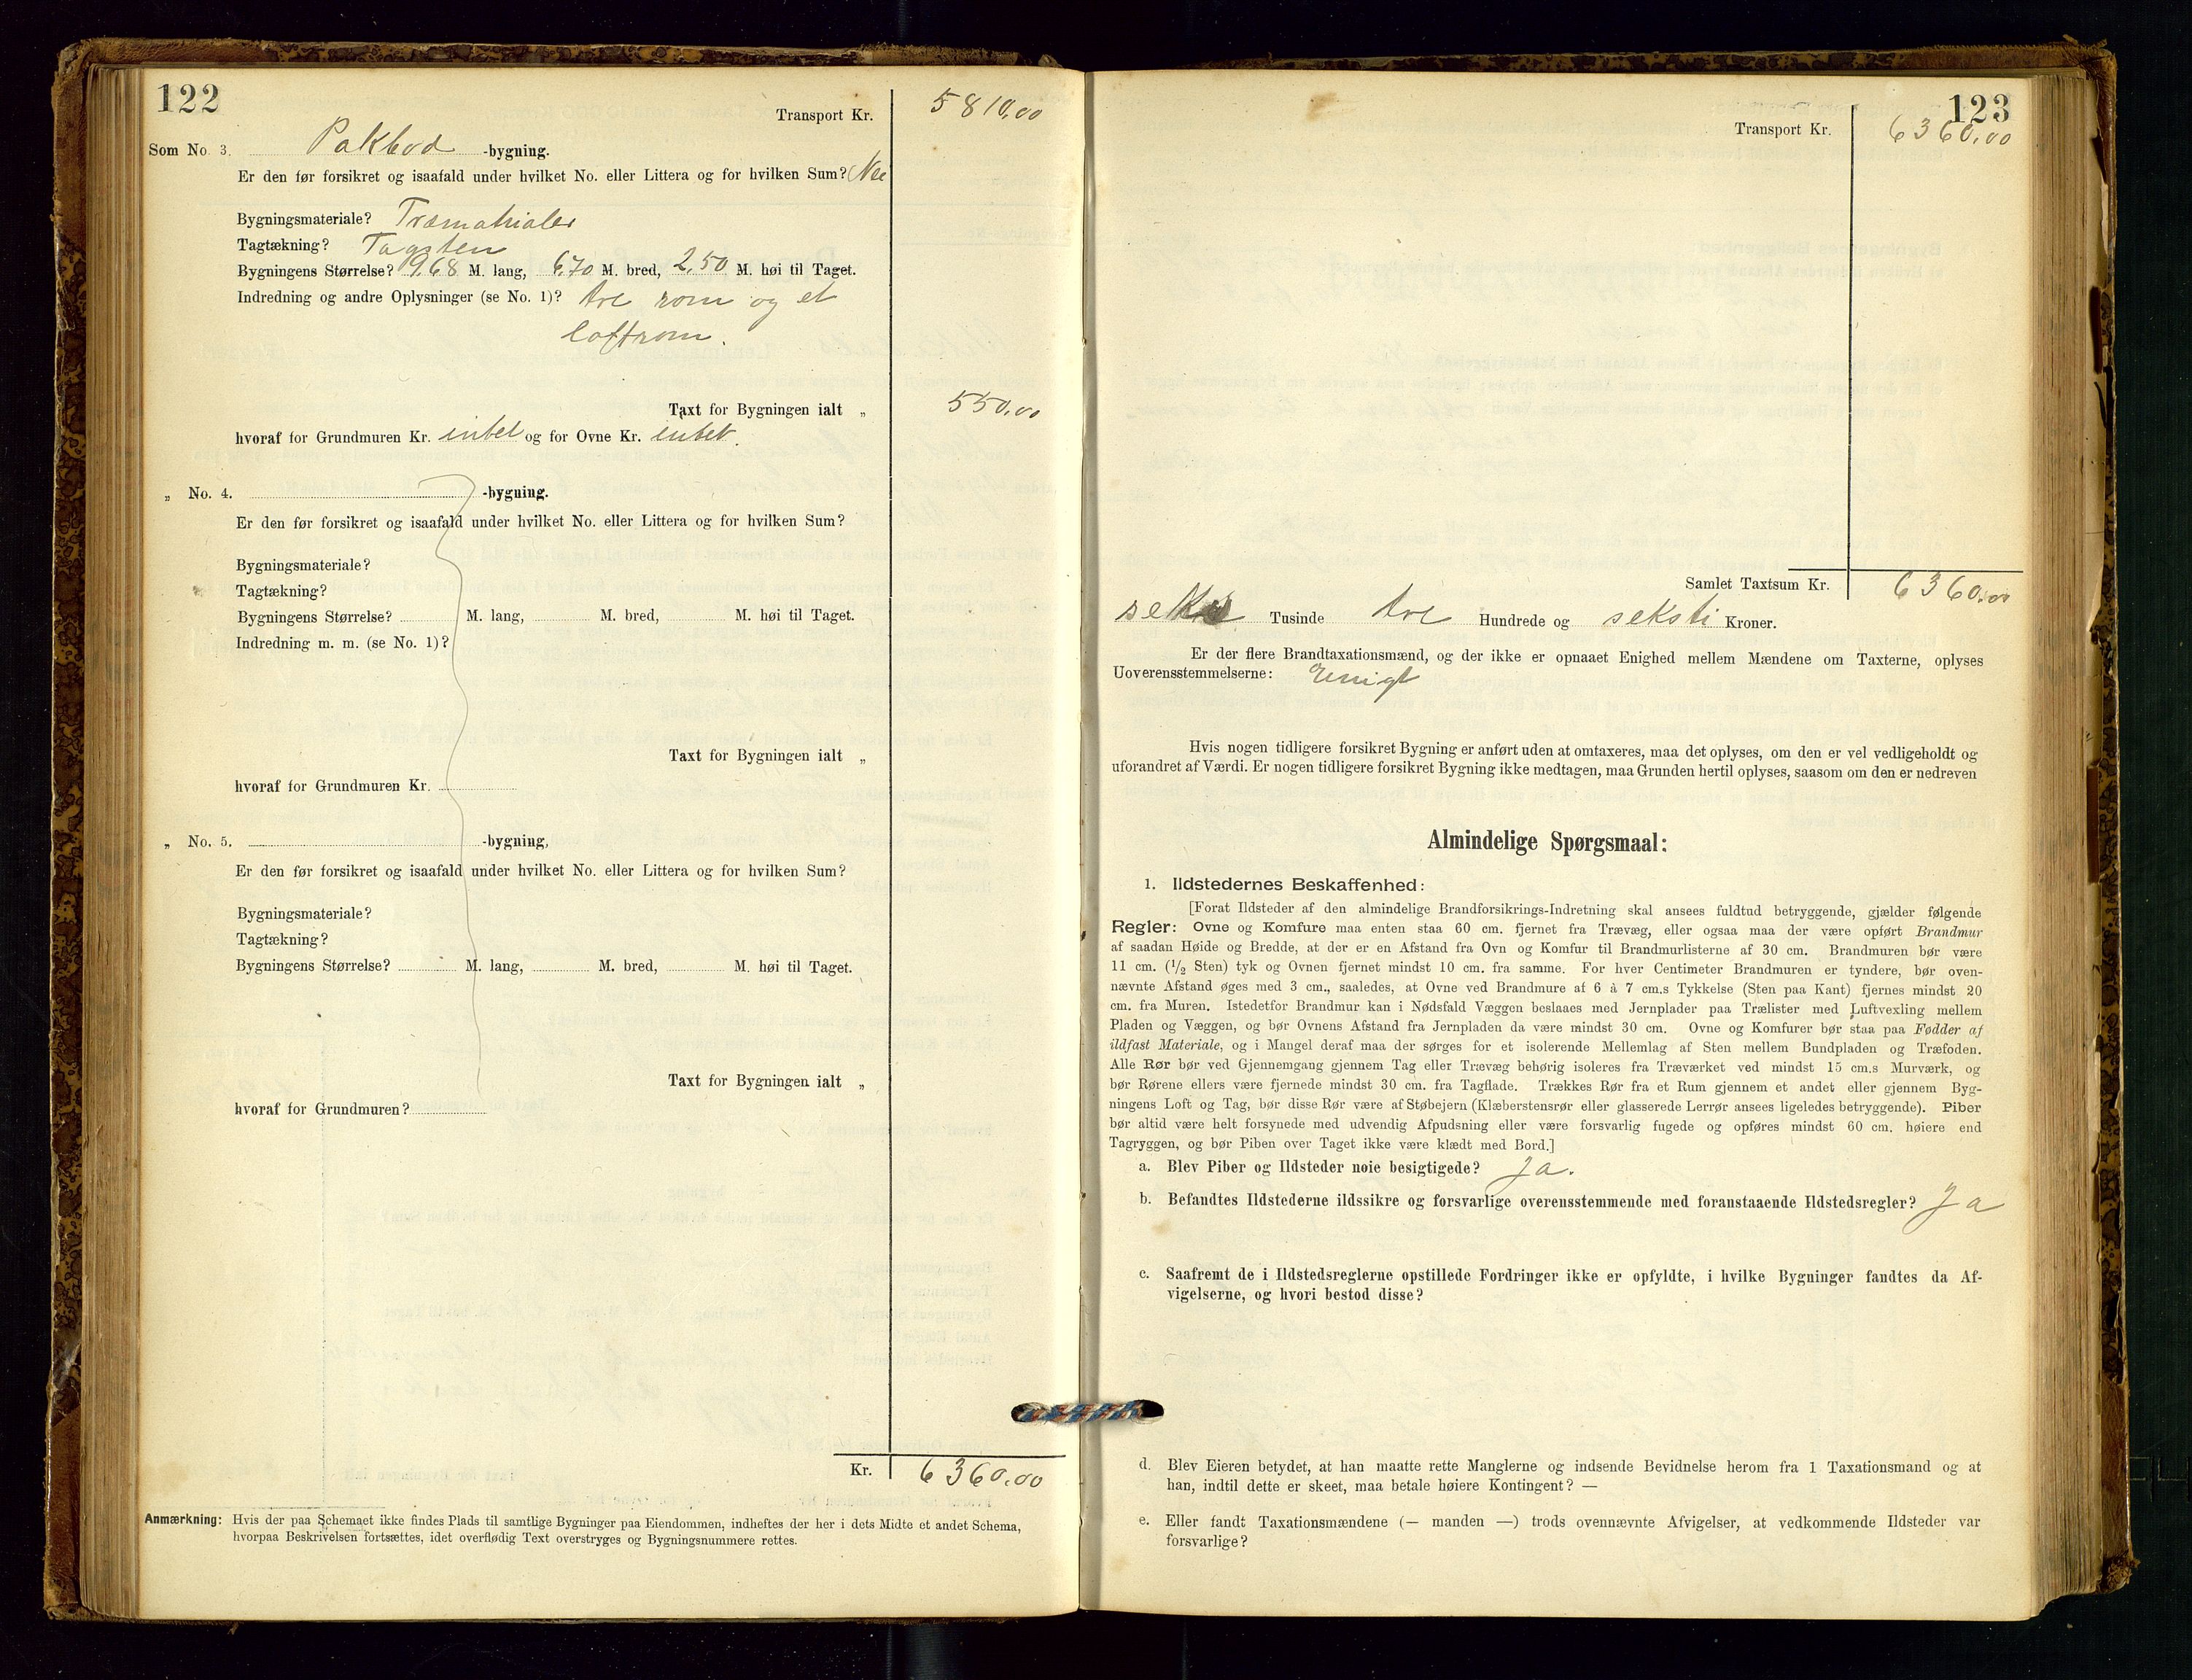 122
Transport Kr. 5810,00
Som No. 3. Pakbod -bygning.
Er den før forsikret og isaafald under hvilket No. eller Littera og for hvilken Sum? Nei
Bygningsmateriale? Træmatrialer
Tagtækning? Tagsten
Bygningens Størrelse? 9,68 M. lang, 6,70 M. bred, 2,50 M. høi til Taget.
Indredning og andre Oplysninger (se No. 1)? tre rom og et
loftrom.
Taxt for Bygningen ialt „ 550,00
hvoraf for Grundmuren Kr. intet og for Ovne Kr. intet.
„ No. 4. -bygning.
Er den før forsikret og isaafald under hvilket No. eller Littera og for hvilken Sum?
Bygningsmateriale?
Tagtækning?
Bygningens Størrelse? M. lang, M. bred, M. høi til Taget.
Indredning m. m. (se No. 1)?
Taxt for Bygningen ialt „
hvoraf for Grundmuren Kr.
„ No. 5. -bygning,
Er den før forsikret og isaafald under hvilket No. eller Littera og for hvilken Sum?
Bygningsmateriale?
Tagtækning?
Bygningens Størrelse? M. lang, M. bred, M. høi til Taget.
Taxt for Bygningen ialt „
hvoraf for Grundmuren?
Kr. 6360,00
Anmærkning: Hvis der paa Schemaet ikke findes Plads til samtlige Bygninger paa Eiendommen, indheftes der her i dets Midte et andet Schema,
hvorpaa Beskrivelsen fortsættes, idet overflødig Text overstryges og Bygningsnummere rettes.
123
Transport Kr. 6360,00
Samlet Taxtsum Kr. 6360,00
seks Tusinde tre Hundrede og seksti Kroner.
Er der flere Brandtaxationsmænd, og der ikke er opnaaet Enighed mellem Mændene om Taxterne, oplyses
Uoverensstemmelserne: Enigt
Hvis nogen tidligere forsikret Bygning er anført uden at omtaxeres, maa det oplyses, om den er vel vedligeholdt og
uforandret af Værdi. Er nogen tidligere forsikret Bygning ikke medtagen, maa Grunden hertil oplyses, saasom om den er nedreven
Almindelige Spørgsmaal:
1. Ildstedernes Beskaffenhed:
[Forat Ildsteder af den almindelige Brandforsikrings-Indretning skal ansees fuldtud betryggende, gjælder følgende
Regler: Ovne og Komfure maa enten staa 60 cm. fjernet fra Trævæg, eller ogsaa maa der være opført Brandmur
af saadan Høide og Bredde, at der er en Afstand fra Ovn og Komfur til Brandmurlisterne af 30 cm. Brandmuren bør være
11 cm. (1/2 Sten) tyk og Ovnen fjernet mindst 10 cm. fra samme. For hver Centimeter Brandmuren er tyndere, bør oven-
nævnte Afstand øges med 3 cm., saaledes, at Ovne ved Brandmure af 6 à 7 cm.s Tykkelse (Sten paa Kant) fjernes mindst 20
cm. fra Muren. Istedetfor Brandmur kan i Nødsfald Væggen beslaaes med Jernplader paa Trælister med Luftvexling mellem
Pladen og Væggen, og bør Ovnens Afstand fra Jernpladen da være mindst 30 cm. Ovne og Komfurer bør staa paa Fødder af
ildfast Materiale, og i Mangel deraf maa der sørges for et isolerende Mellemlag af Sten mellem Bundpladen og Træfoden.
Alle Rør bør ved Gjennemgang gjennem Tag eller Trævæg behørig isoleres fra Træværket ved mindst 15 cm.s Murværk, og
bør Rørene ellers være fjernede mindst 30 cm. fra Tagflade. Trækkes Rør fra et Rum gjennem et andet eller gjennem Byg-
ningens Loft og Tag, bør disse Rør være af Støbejern (Klæberstensrør eller glasserede Lerrør ansees ligeledes betryggende). Piber
bør altid være helt forsynede med udvendig Afpudsning eller være forsvarlig fugede og opføres mindst 60 cm. høiere end
Tagryggen, og bør Piben over Taget ikke være klædt med Bord.]
a. Blev Piber og Ildsteder nøie besigtigede? Ja.
b. Befandtes Ildstederne ildssikre og forsvarlige overensstemmende med foranstaaende Ildstedsregler? Ja
c. Saafremt de i Ildstedsreglerne opstillede Fordringer ikke er opfyldte, i hvilke Bygninger fandtes da Af-
vigelserne, og hvori bestod disse?
d. Blev Eieren betydet, at han maatte rette Manglerne og indsende Bevidnelse herom fra 1 Taxationsmand og at
han, indtil dette er skeet, maa betale høiere Kontingent? —
e. Eller fandt Taxationsmændene (— manden —) trods ovennævnte Afvigelser, at vedkommende Ildsteder var
forsvarlige?